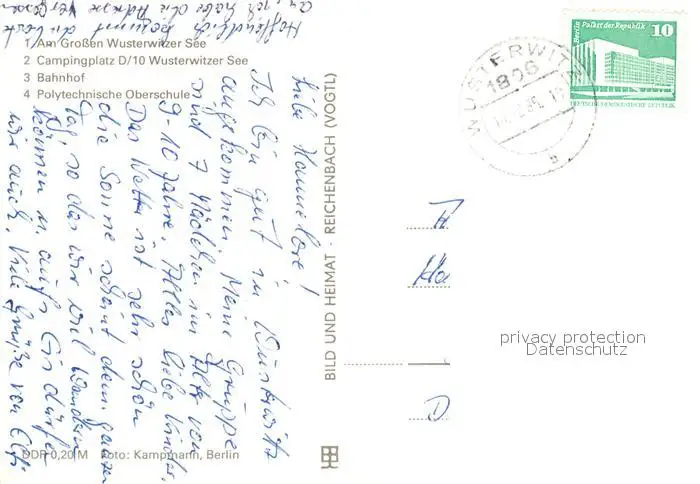 1 Am Großen Wusterwitzer See
2 Campingplatz D/10 Wusterwitzer See
3 Bahnhof
4 Polytechnische Oberschule
Liebe Hannelore!
Ich bin gut in Wusterwitz
angekommen. Meine Gruppe
sind 7 Mädchen im Alter von
9-10 Jahre. Alles liebe Kinder.
Das Wetter ist sehr schön
die Sonne scheint den ganzen
Tag, so das wir viel wandern
können u. aufs Eis dürfen
wir auch. Viele Grüße von
Hoffentlich kommt die Karte
an, ich habe die Adresse vergessen
BILD UND HEIMAT · REICHENBACH (VOGTL)
DDR 0,20 M Foto: Kampmann, Berlin
WUSTERWITZ
1806
Berlin Palast der Republik 10
DEUTSCHE DEMOKRATISCHE REPUBLIK
Ha
D
privacy protection
Datenschutz